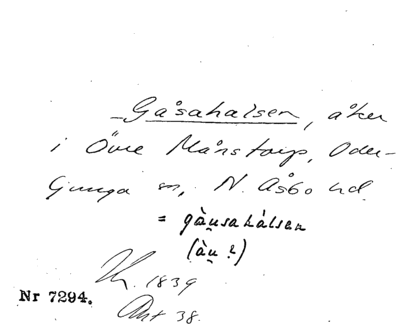 Gåsahalsen, åker
i Övre Månstorp, Oder-
ljunga sn, N. Åsbo hd.
= gàu̯sahálsen
(àu̯ ?)
1839
Nr 7294.
Ant 38.